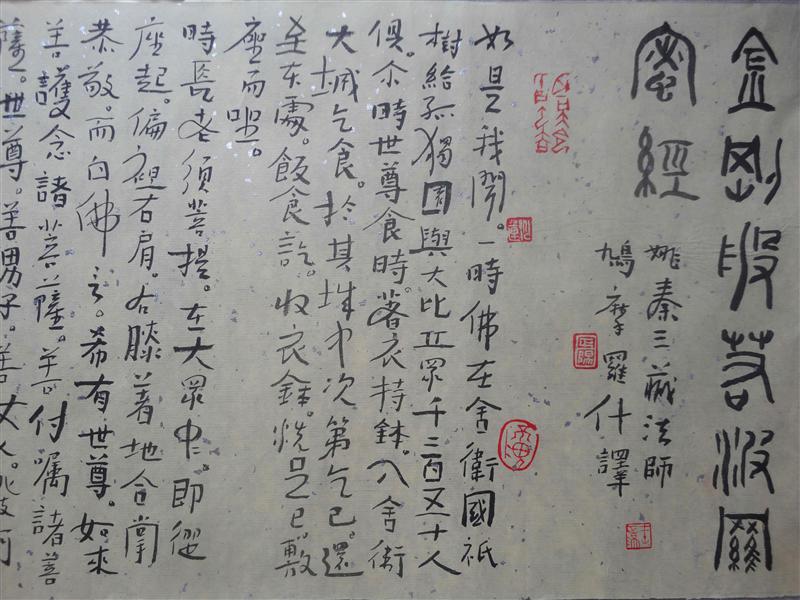 金剛般若波羅
蜜經
姚秦三藏法師
鳩摩羅什譯
如是我聞。一時佛在舍衛國祇
樹給孤獨園與大比丘眾千二百五十人
俱。尒時世尊食時。著衣持鉢。入舍衛
大城乞食。於其城中次第乞已。還
至本處。飯食訖。收衣鉢。洗足已。敷
座而坐。
時長老須菩提。在大眾中。即從
座起。偏袒右肩。右膝著地合掌
恭敬。而白佛言。希有世尊。如來
善護念諸菩薩。善付囑諸菩
薩。世尊。善男子。善女人。